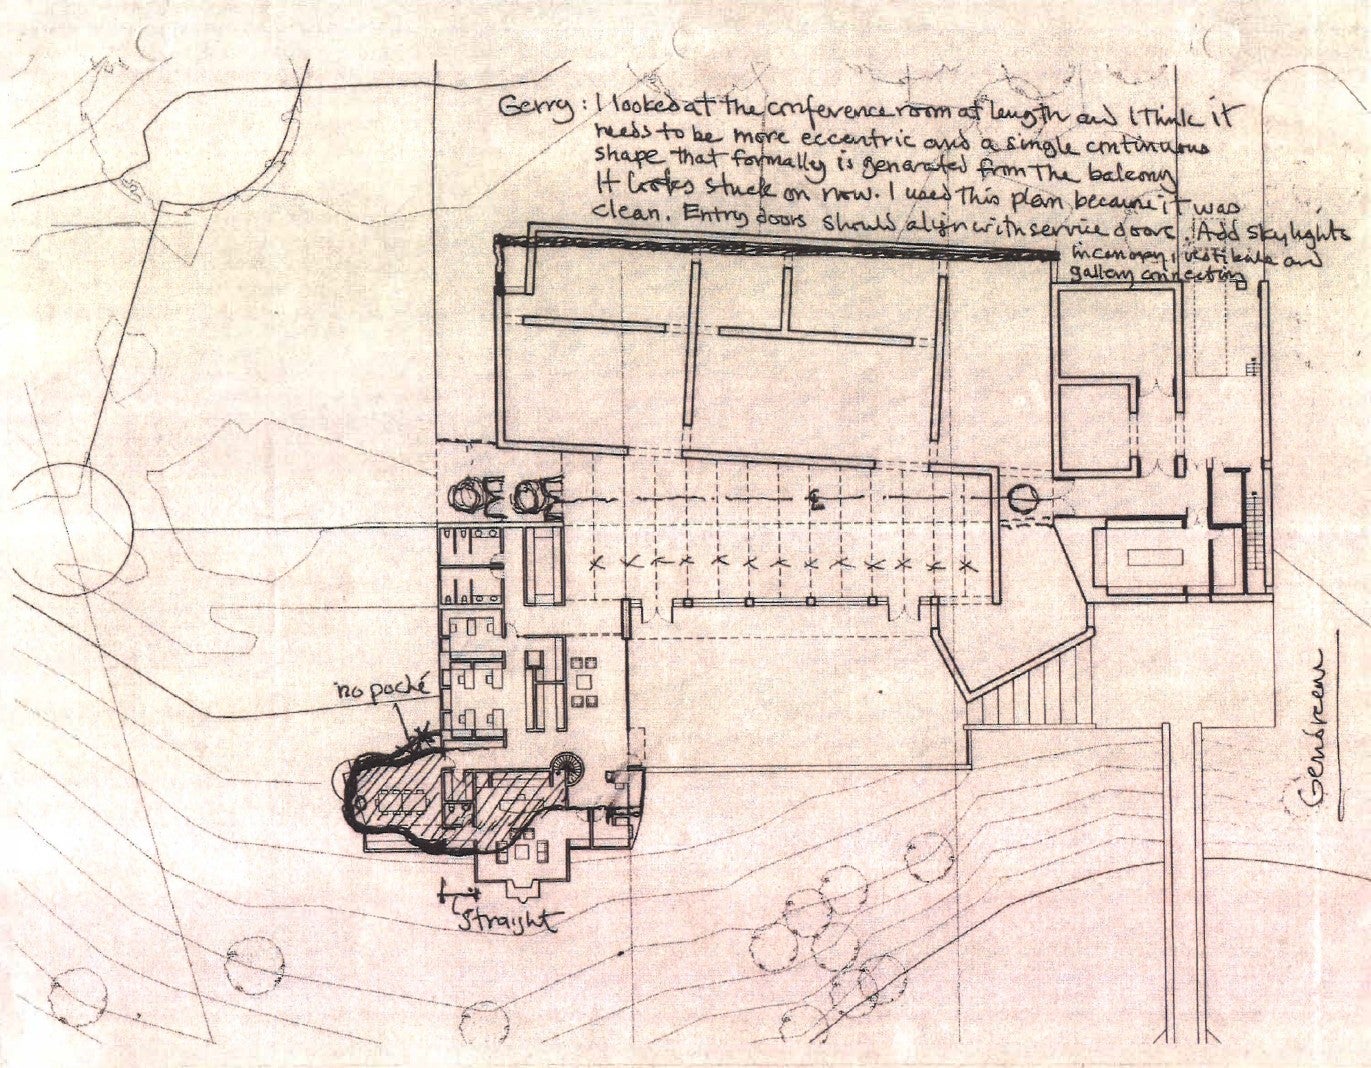 Gerry: I looked at the conference room at length and I think it
needs to be more eccentric and a single continuous
shape that formally is generated from the balcony
It looks stuck on now. I used this plan because it was
clean. Entry doors should align with service doors. Add skylights
in canopy, vestibule and
gallery connecting
no poché
straight